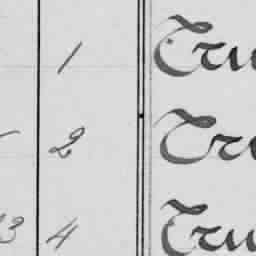 1 Tru
2 Tru
13 4 Tru